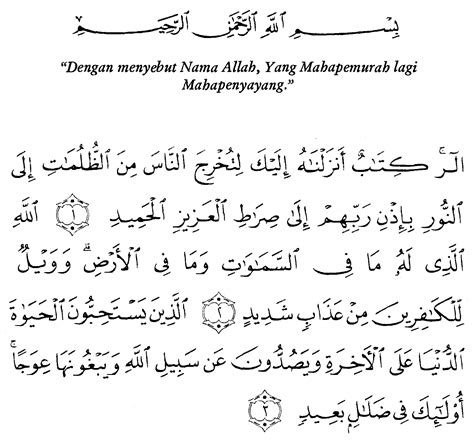 بِسْمِ ٱللَّهِ ٱلرَّحْمَٰنِ ٱلرَّحِيمِ
“Dengan menyebut Nama Allah, Yang Mahapemurah lagi
Mahapenyayang.”
الٓرۚ كِتَٰبٌ أَنزَلْنَٰهُ إِلَيْكَ لِتُخْرِجَ ٱلنَّاسَ مِنَ ٱلظُّلُمَٰتِ إِلَى
ٱلنُّورِ بِإِذْنِ رَبِّهِمْ إِلَىٰ صِرَٰطِ ٱلْعَزِيزِ ٱلْحَمِيدِ ١ ٱللَّهِ
ٱلَّذِى لَهُۥ مَا فِى ٱلسَّمَٰوَٰتِ وَمَا فِى ٱلْأَرْضِۗ وَوَيْلٌ
لِّلْكَٰفِرِينَ مِنْ عَذَابٍ شَدِيدٍ ٢ ٱلَّذِينَ يَسْتَحِبُّونَ ٱلْحَيَوٰةَ
ٱلدُّنْيَا عَلَى ٱلْءَاخِرَةِ وَيَصُدُّونَ عَن سَبِيلِ ٱللَّهِ وَيَبْغُونَهَا عِوَجًاۚ
أُو۟لَٰٓئِكَ فِى ضَلَٰلٍۭ بَعِيدٍ ٣